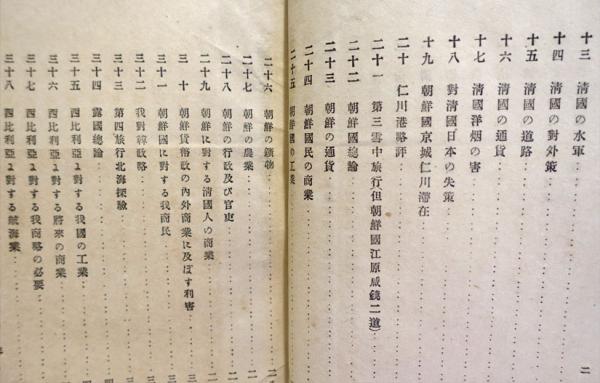 十三 清國の水軍
十四 清國の對外策
十五 清國の道路
十六 清國の通貨
十七 清國洋烟の害
十八 對清國日本の失策
十九 朝鮮國京城仁川滯在
二十 仁川港略評
二十一 第三雪中旅行但朝鮮國江原咸鏡二道)
二十二 朝鮮國總論
二十三 朝鮮の通貨
二十四 朝鮮國民の商業
二十五 朝鮮國の工業
二十六 朝鮮の鑛物
二十七 朝鮮の農業
二十八 朝鮮の行政及び官吏
二十九 朝鮮に對する清國人の商業
三十 朝鮮貨幣政の內外商業に及ぼす利害
三十一 朝鮮國に對する我商民
三十二 我對韓政略
三十三 第四旅行北海探險
三十四 露國總論
三十五 西比利亞よ對する我國の工業
三十六 西比利亞よ對する將來の商業
三十七 西比利亞よ對する我商略の必要
三十八 西比利亞よ對する航海業
二